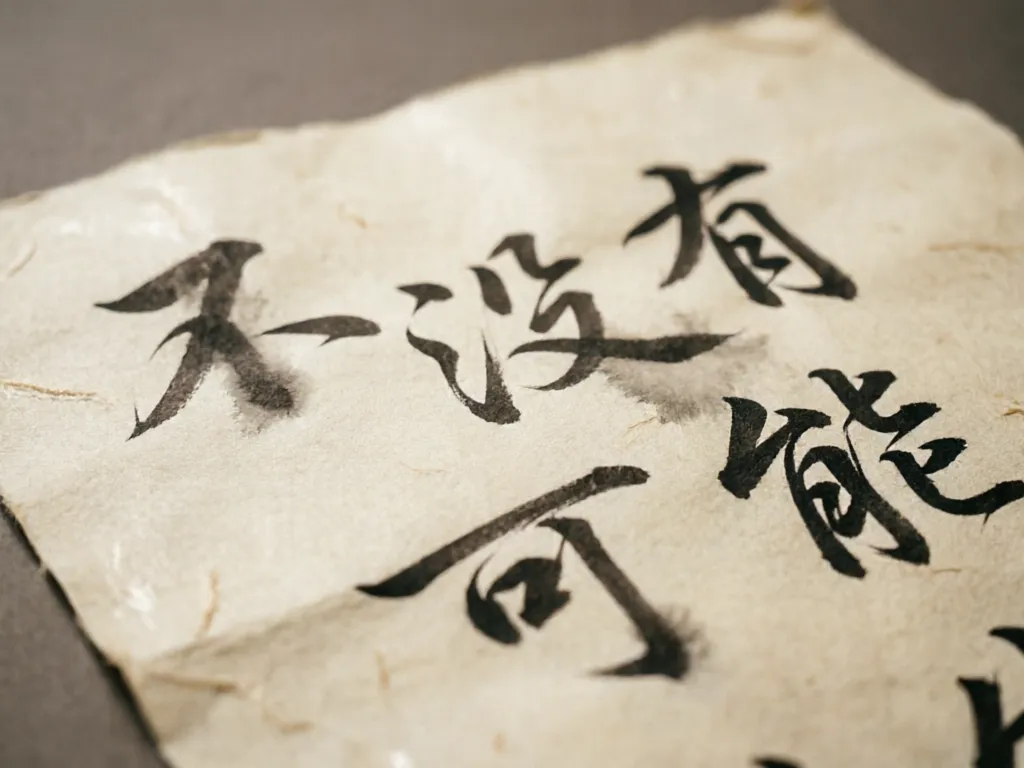 不没有
可能